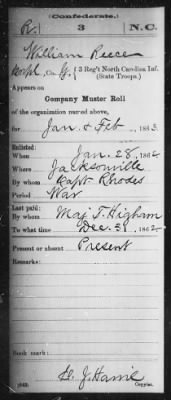 (Confederate.)
R. 3 N.C.
William Reece
Corpl, Co. G, (3 Reg't North Carolina Inf.
(State Troops.)
Appears on
Company Muster Roll
of the organization named above,
for Jan & Feb, 1863.
Enlisted:
When Jan. 28, 1862
Where Jacksonville
By whom Capt Rhodes
Period War
Last paid:
By whom Maj T. Higham
To what time Dec. 31, 1862
Present or absent Present
Remarks:
Book mark:
Copyist.